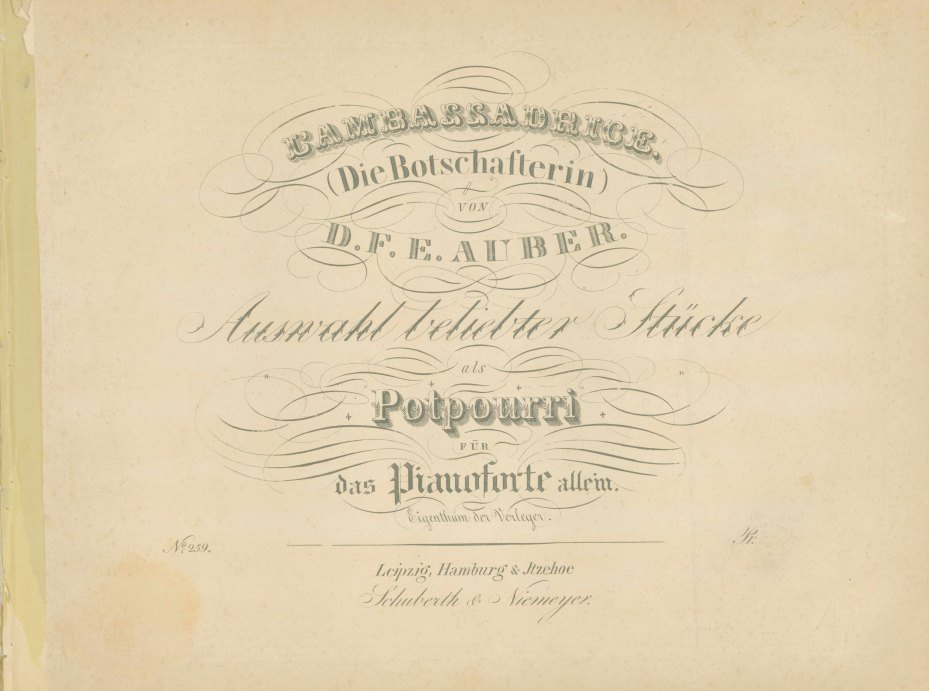 L'AMBASSADRICE.
(Die Botschafterin)
VON
D. F. E. AUBER.
Auswahl beliebter Stücke
als
Potpourri
FÜR
das Pianoforte allein.
Eigenthum der Verleger.
No. 259.
Pr.
Leipzig, Hamburg & Itzehoe
Schuberth & Niemeyer.